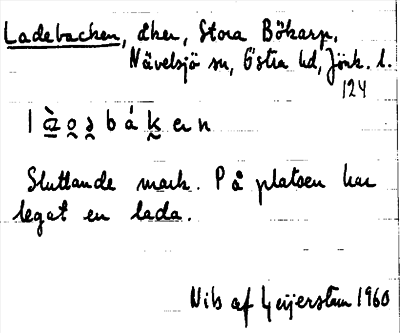 Ladebacken, åker, Stora Bökarp,
Nävelsjö sn, Östra hd, Jönk. l.
124
Sluttande mark. På platsen har
legat en lada.
Nils af Geijerstam 1960